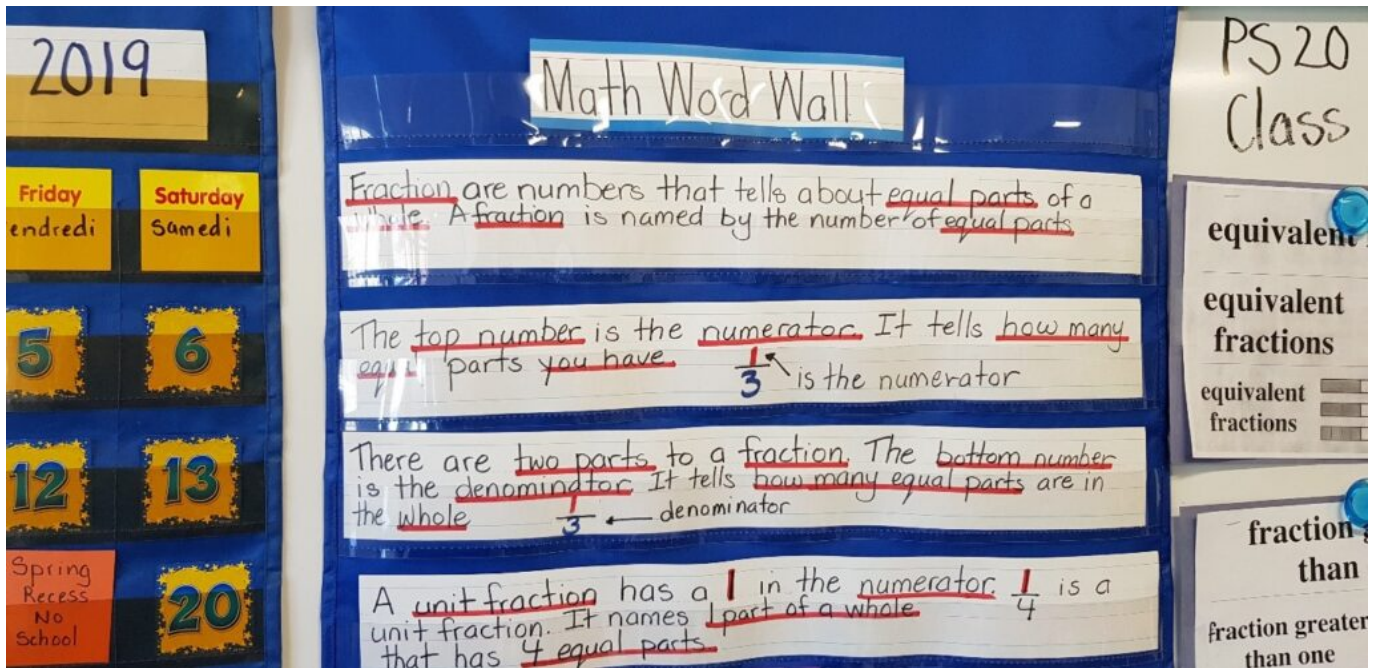 2019
Friday
endredi
Saturday
samedi
5
6
12
13
Spring
Recess
No
School
20
Math Word Wall
Fraction are numbers that tells about equal parts of a
whole. A fraction is named by the number of equal parts
The top number is the numerator. It tells how many
equal parts you have.
1
3
is the numerator
There are two parts to a fraction. The bottom number
is the denominator. It tells how many equal parts are in
the whole
1
3
denominator
A unit fraction has a 1 in the numerator. 1/4 is a
unit fraction. It names 1 part of a whole
that has 4 equal parts.
PS 20
Class
equivalent
equivalent
fractions
equivalent
fractions
fraction
than
fraction greater
than one